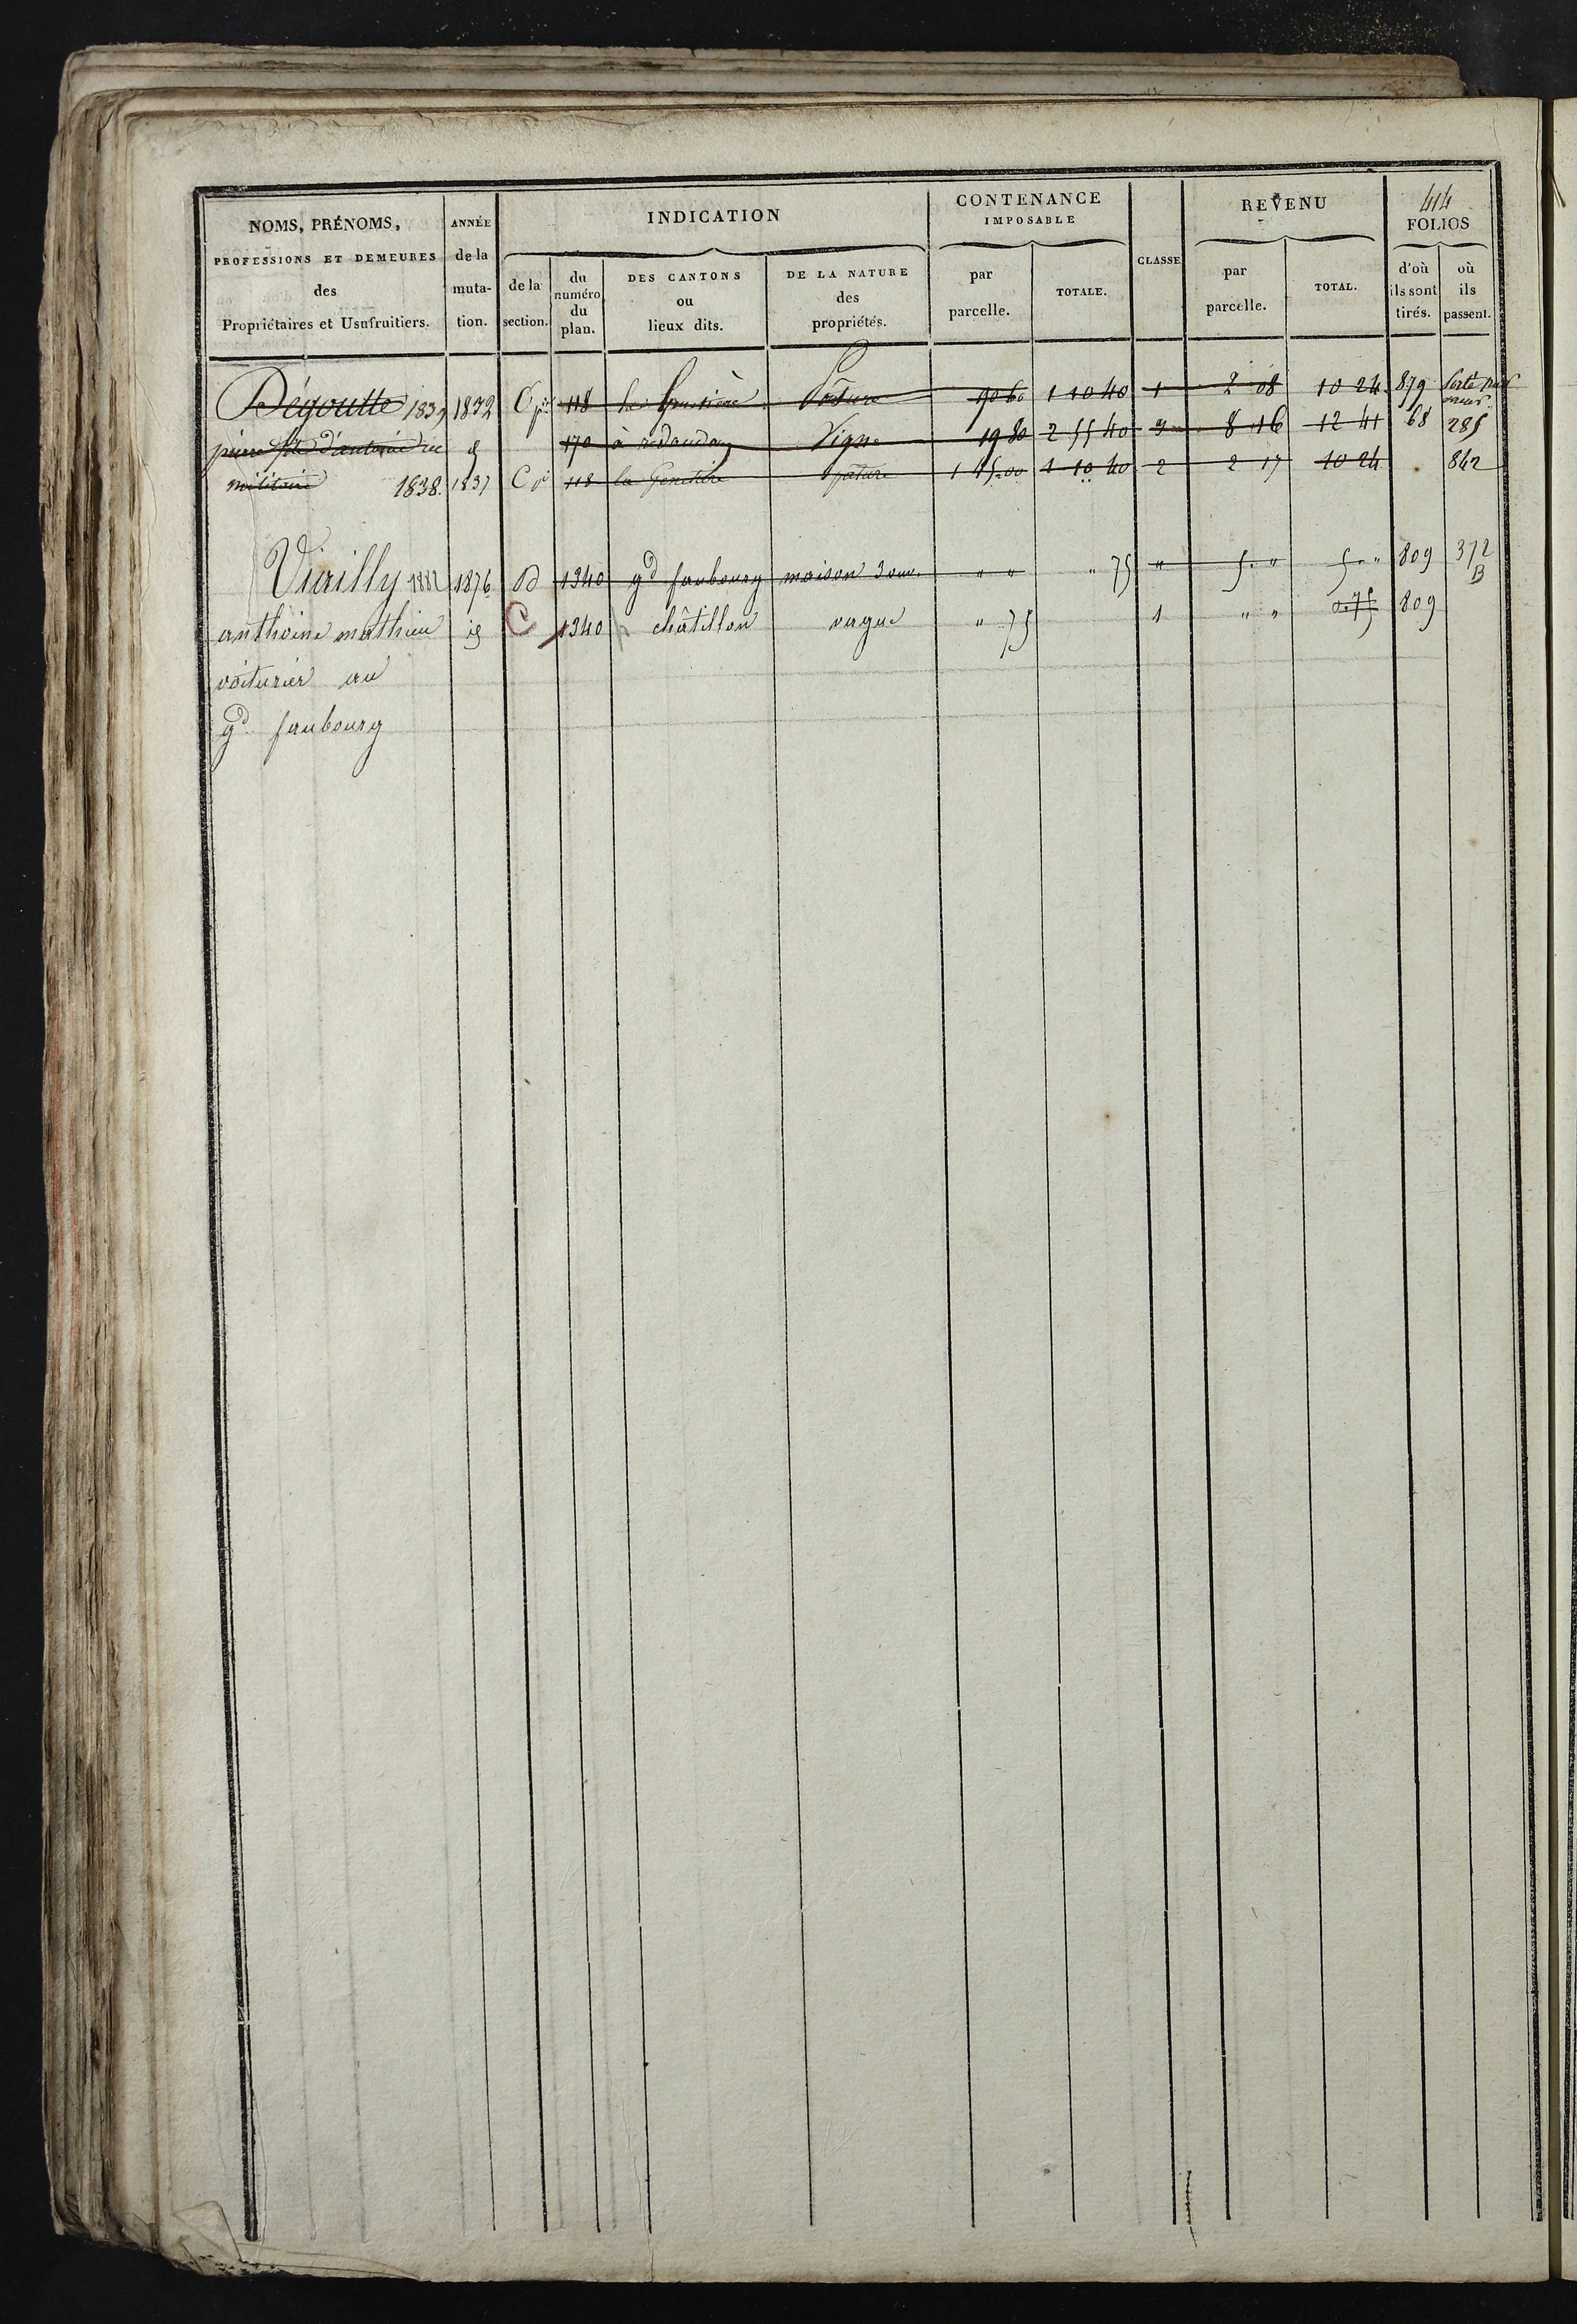 414
NOMS, PRÉNOMS, ANNÉE INDICATION CONTENANCE IMPOSABLE CLASSE REVENU FOLIOS
PROFESSIONS ET DEMEURES de la
des muta-
Propriétaires et Usufruitiers. tion.
de la section. du numéro du plan. DES CANTONS ou lieux dits. DE LA NATURE des propriétés. par parcelle. TOTALE. par parcelle. TOTAL. d'où ils sont tirés. où ils passent.
Dégoutte 1839 1832 C 118 Pature 90 60 1 10 40 1 2 08 10 24 879
pierre d'antoine 170 à Vigne 19 80 2 55 40 3 8 16 12 41 68 285
militaire 1838. 1837 C 118 la pature 1 10 40 2 2 17 10 24 842
Virilly 1882 1876 D 1340 gd faubourg maison 3 ouv. " " " 75 " 5. " 5. " 809 372 B
anthoine mathieu id C 1340 châtillon vague " 75 1 " " 0.75 809
voiturier au
gd faubourg